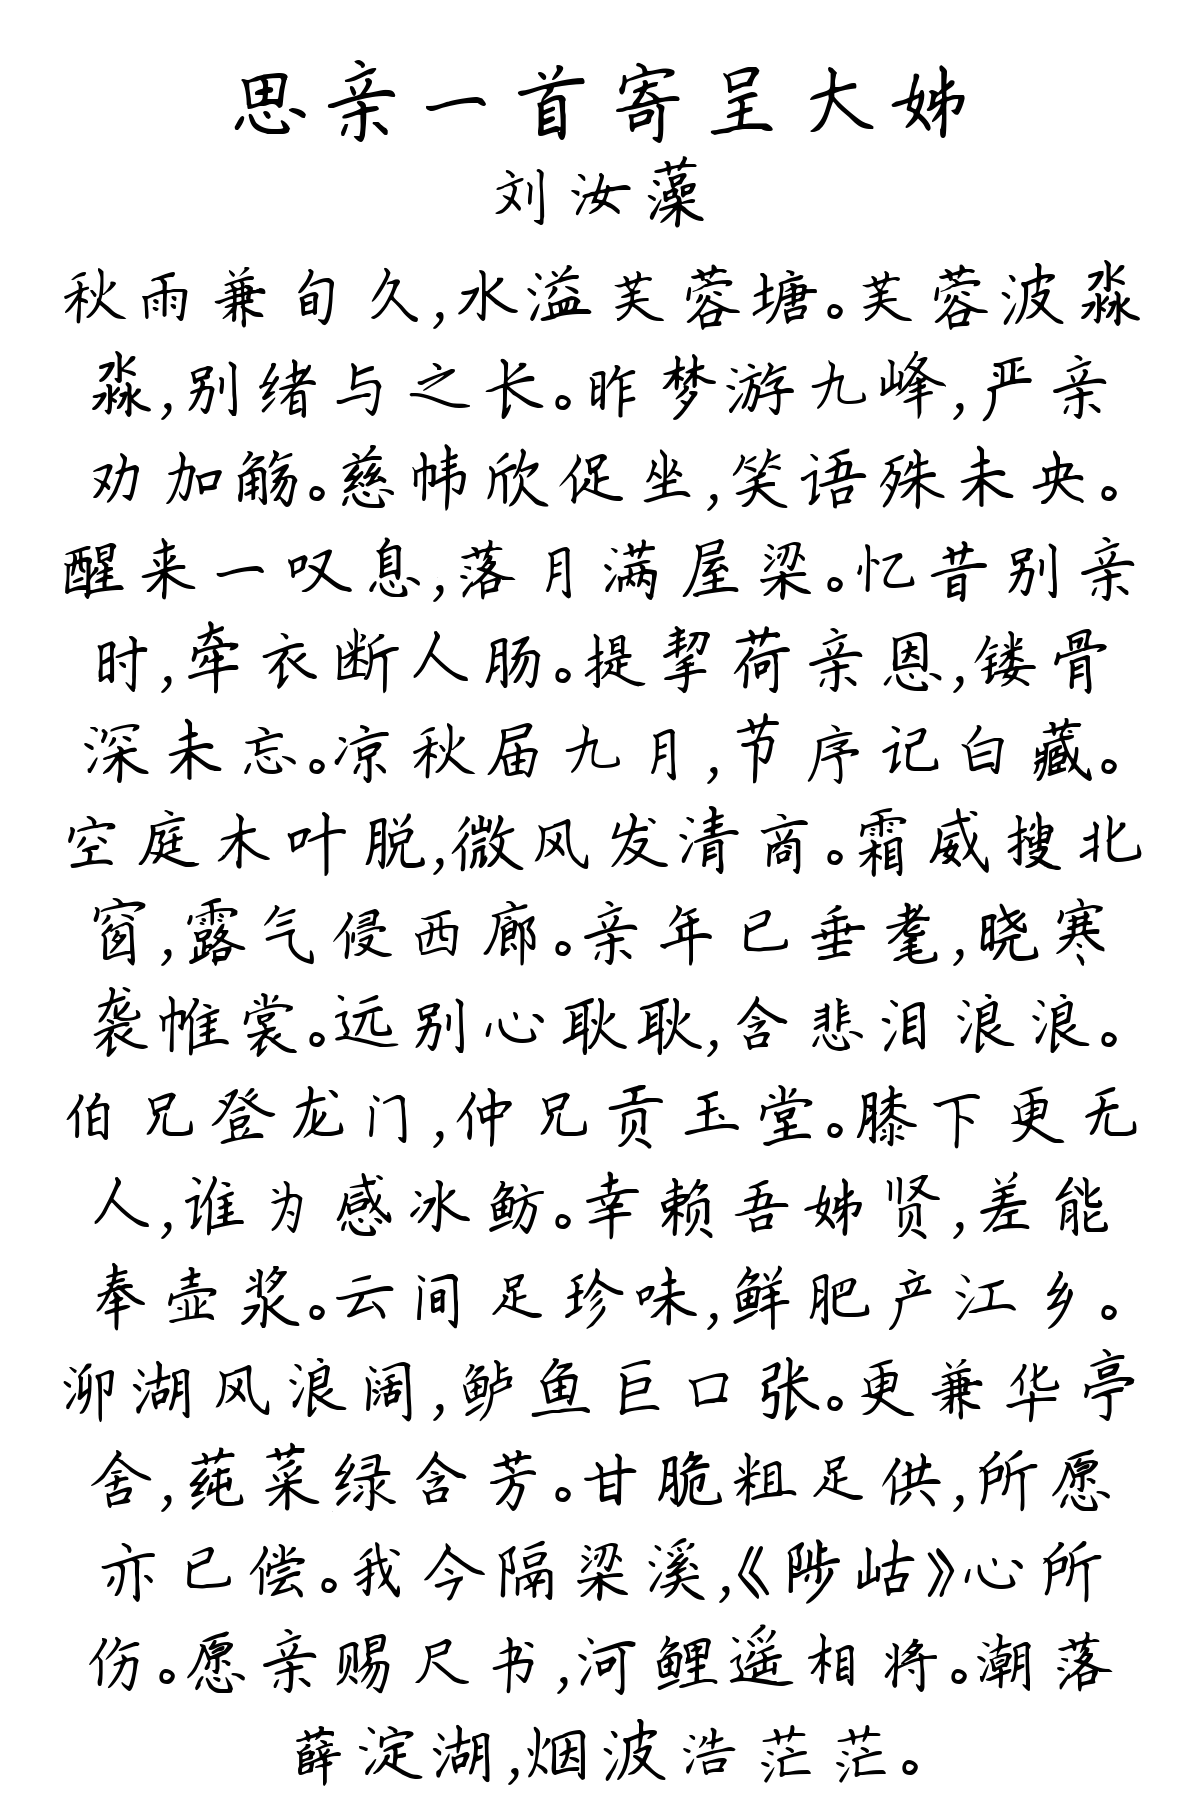 思亲一首寄呈大姊
刘汝藻
秋雨兼旬久,水溢芙蓉塘。芙蓉波淼
淼,别绪与之长。昨梦游九峰,严亲
劝加觞。慈帏欣促坐,笑语殊未央。
醒来一叹息,落月满屋梁。忆昔别亲
时,牵衣断人肠。提挈荷亲恩,镂骨
深未忘。凉秋届九月,节序记白藏。
空庭木叶脱,微风发清商。霜威搜北
窗,露气侵西廊。亲年已垂耄,晓寒
袭帷裳。远别心耿耿,含悲泪浪浪。
伯兄登龙门,仲兄贡玉堂。膝下更无
人,谁为感冰鲂。幸赖吾姊贤,差能
奉壶浆。云间足珍味,鲜肥产江乡。
泖湖风浪阔,鲈鱼巨口张。更兼华亭
舍,莼菜绿含芳。甘脆粗足供,所愿
亦已偿。我今隔梁溪,《陟岵》心所
伤。愿亲赐尺书,河鲤遥相将。潮落
薛淀湖,烟波浩茫茫。